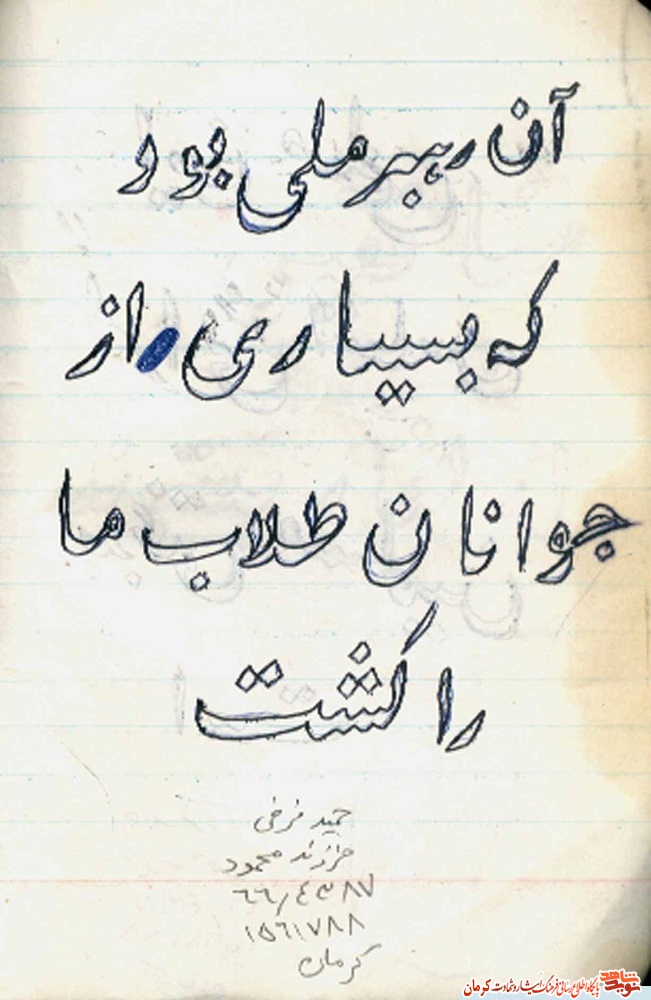 آن رهبر ملی بود
که بسیاری از
جوانان طلاب ما
را کشت
حمید فرخی
فرزند محمود
۱۵۶۱۷۸۸
کرمان
نوید شاهد پایگاه اطلاع رسانی فرهنگ ایثار و شهادت کرمان